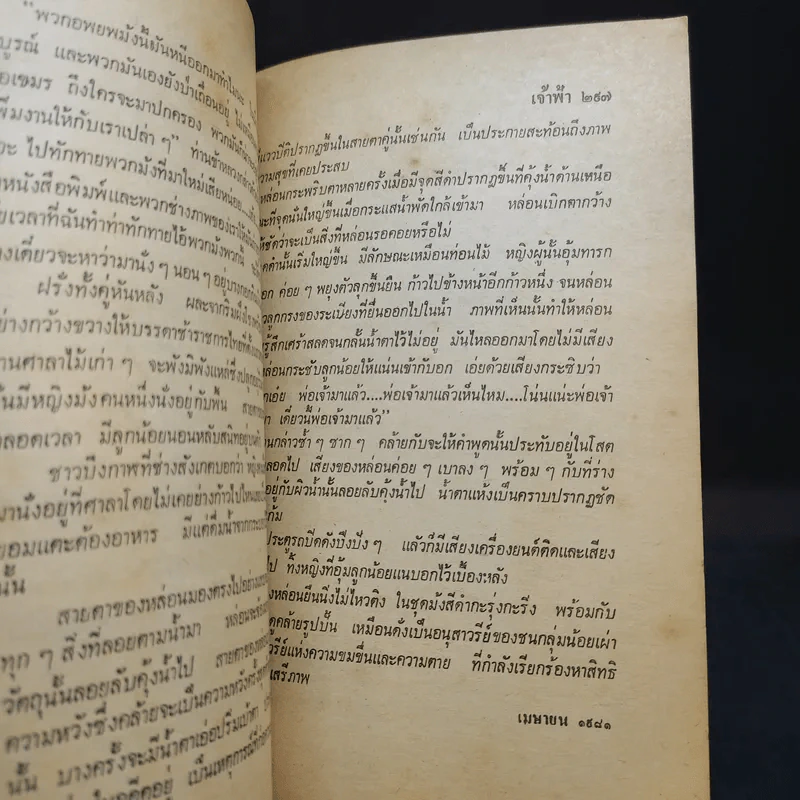 "พวกอพยพม้งนี้มันหนีออกมาทำไมนะ
บูรณ์ และพวกมันเองยังป่าเถื่อนอยู่
อเขมร ถึงใครจะมาปกครอง พวกมัน
พิ่มงานให้กับเราเปล่า ๆ" ท่านข้าหลวง
ะ ไปทักทายพวกม้งที่มาใหม่เสียหน่อย
หนังสือพิมพ์และพวกช่างภาพของเราให้
ยเวลาที่ฉันทำท่าทักทายไอ้พวกม้งพวกนี้
งเดี๋ยวจะหาว่ามานั่ง ๆ นอน ๆ อยู่บางกอก
ฝรั่งทั้งคู่หันหลัง ผละจากริมฝั่งโขง
ย่างกว้างขวางให้บรรดาข้าราชการไทยที่
านศาลาไม้เก่า ๆ จะพังมิพังแหล่ซึ่งปลูก
นมีหญิงม้งคนหนึ่งนั่งอยู่กับพื้น สายตา
ลอดเวลา มีลูกน้อยนอนหลับสนิทอยู่บน
ชาวบึงกาฬที่ช่างสังเกตบอกว่า หญิง
มานั่งอยู่ที่ศาลาโดยไม่เคยย่างก้าวไปไหน
ยอมแตะต้องอาหาร มีแต่ดื่มน้ำจากกระบอก
นั้น
สายตาของหล่อนมองตรงไปอย่าง
ทุก ๆ สิ่งที่ลอยตามน้ำมา หล่อนจะจ้อง
วัตถุนั้นลอยลับคุ้งน้ำไป สายตาของ
ความหวังซึ่งคล้ายจะเป็นความหวังครั้ง
นั้น บางครั้งจะมีน้ำตาเอ่อปริ่มเบ้าตา
เป็นเหตุการณ์
เจ้าฟ้า ๒๙๗
แววปีติปรากฏขึ้นในสายตาคู่นั้นเช่นกัน เป็นประกายสะท้อนถึงภาพ
ความสุขที่เคยประสบ
หล่อนกระพริบตาหลายครั้งเมื่อมีจุดสีดำปรากฏขึ้นที่คุ้งน้ำด้านเหนือ
ะที่จุดนั้นใหญ่ขึ้นเมื่อกระแสน้ำพัดใกล้เข้ามา หล่อนเบิกตากว้าง
ห้ชัดว่าจะเป็นสิ่งที่หล่อนรอคอยหรือไม่
ดดำนั้นเริ่มใหญ่ขึ้น มีลักษณะเหมือนท่อนไม้ หญิงผู้นั้นอุ้มทารก
อก ค่อย ๆ พยุงตัวลุกขึ้นยืน ก้าวไปข้างหน้าอีกก้าวหนึ่ง จนหล่อน
วลูกกรงของระเบียงที่ยื่นออกไปในน้ำ ภาพที่เห็นนั้นทำให้หล่อน
รู้สึกเศร้าสลดจนกลั้นน้ำตาไว้ไม่อยู่ มันไหลออกมาโดยไม่มีเสียง
หล่อนกระชับลูกน้อยให้แน่นเข้ากับอก เอ่ยด้วยเสียงกระซิบว่า
กเอ๋ย พ่อเจ้ามาแล้ว....พ่อเจ้ามาแล้วเห็นไหม....โน่นแน่ะพ่อเจ้า
า เดี๋ยวนี้พ่อเจ้ามาแล้ว"
นกล่าวซ้ำ ๆ ซาก ๆ คล้ายกับจะให้คำพูดนั้นประทับอยู่ในโสต
ลอดไป เสียงของหล่อนค่อย ๆ เบาลง ๆ พร้อม ๆ กับที่ร่าง
อยู่กับผิวน้ำนั้นลอยลับคุ้งน้ำไป น้ำตาแห้งเป็นคราบปรากฏชัด
ก้ม
ประตูรถปิดดังปึงปัง ๆ แล้วก็มีเสียงเครื่องยนต์ติดและเสียง
ป ทิ้งหญิงที่อุ้มลูกน้อยแนบอกไว้เบื้องหลัง
งหล่อนยืนนิ่งไม่ไหวติง ในชุดม้งสีดำกะรุ่งกะริ่ง พร้อมกับ
ดูคล้ายรูปปั้น เหมือนดั่งเป็นอนุสาวรีย์ของชนกลุ่มน้อยเผ่า
วรีย์แห่งความขมขื่นและความตาย ที่กำลังเรียกร้องหาสิทธิ
เสรีภาพ
เมษายน ๑๙๘๑